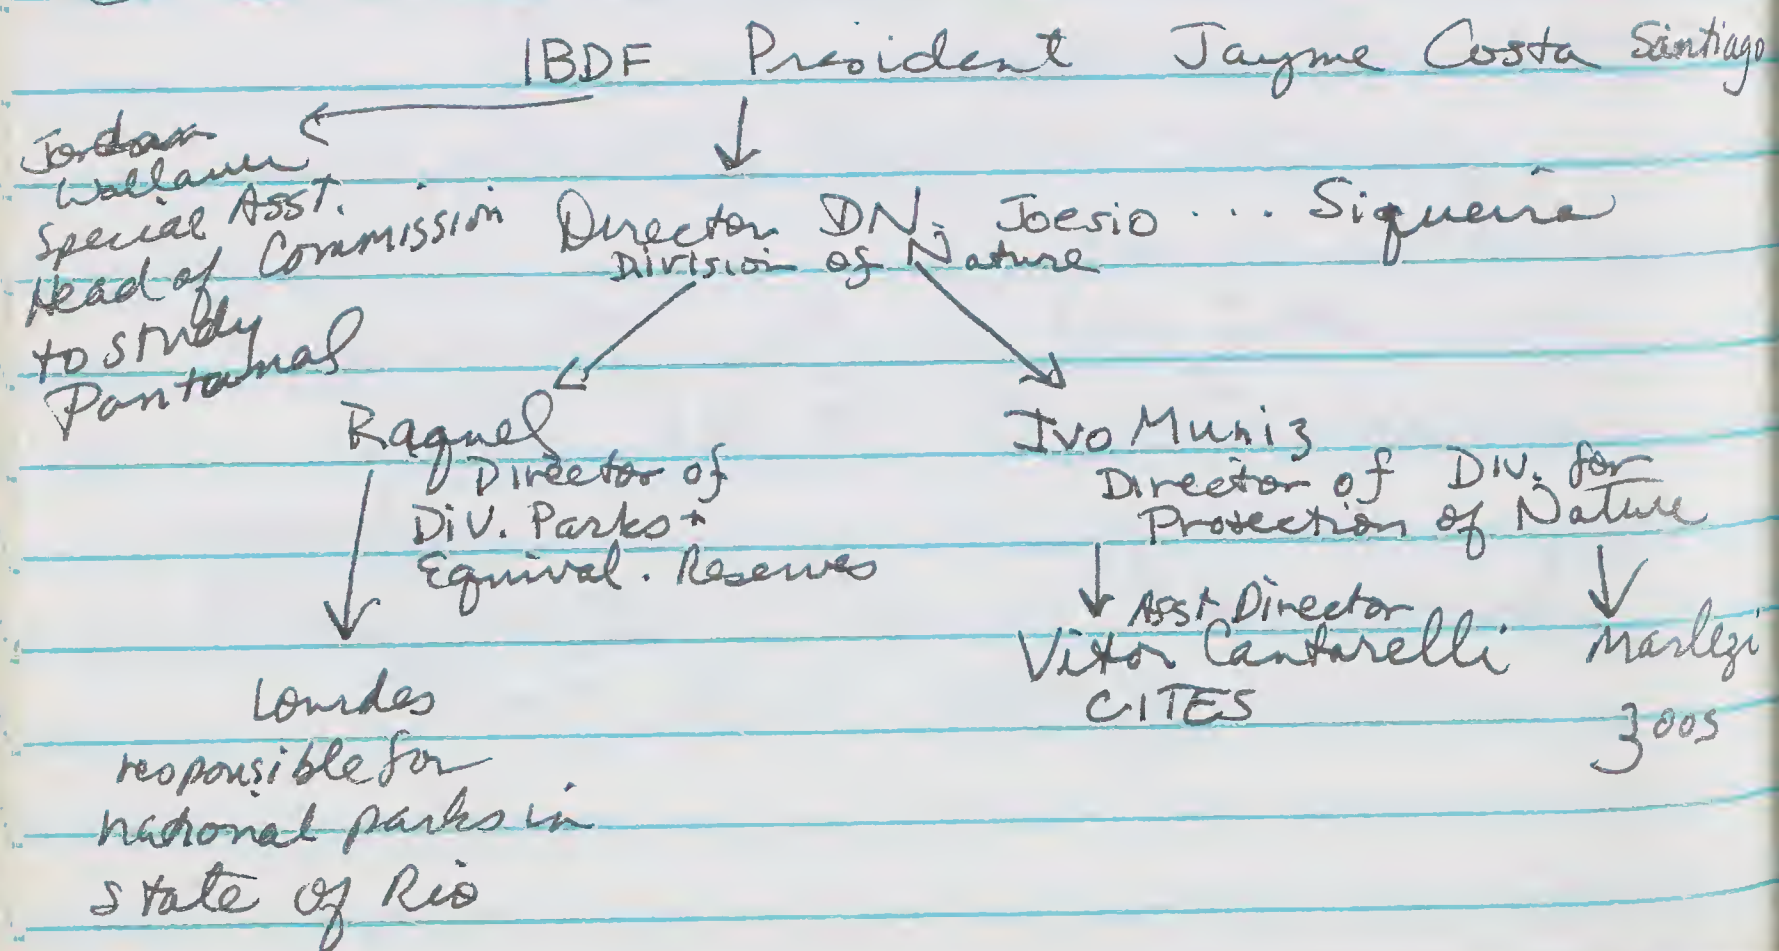 IBDF President Jayme Costa Santiago
Jordan
Wallauer
Special Asst.
Head of Commission
to study
Pantanal
Director DN. Joesio ... Siqueira
Division of Nature
Raquel
Director of
Div. Parks +
Equival. Reserves
Lourdes
responsible for
national parks in
state of Rio
Ivo Muniz
Director of Div. for
Protection of Nature
Asst Director
Vitor Cantarelli
CITES
Marlezi
zoos